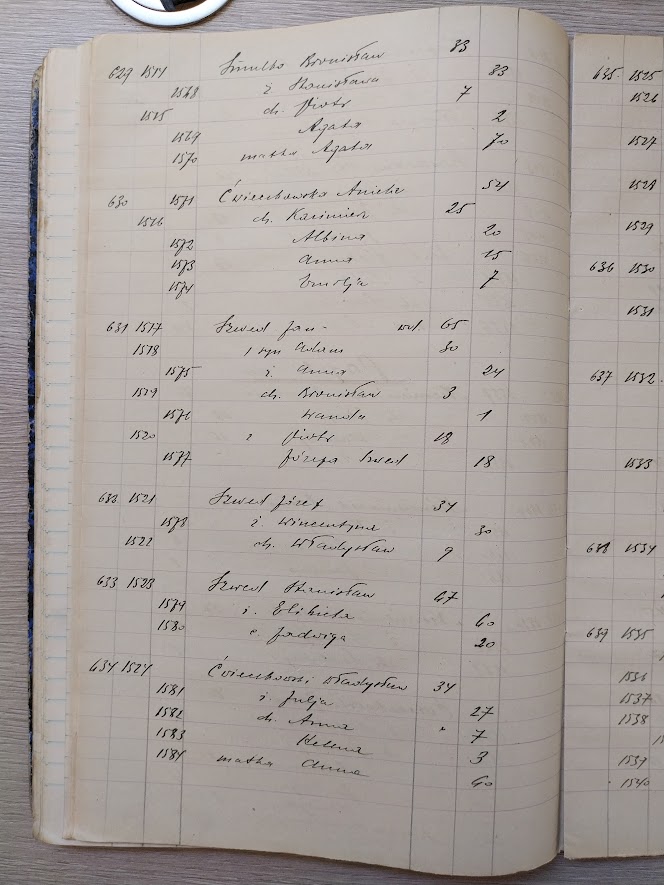 629 1514 Bronisław 33
1568 ż Stanisława 33
1515 ch. Piotr 7
1569 Agata 2
1570 matka Agata 70
630 1571 Ćwiechowska Aniela 54
1516 ch. Kazimierz 25
1572 Albina 20
1573 Anna 15
1574 Emilja 7
631 1517 Szwed Jan - wd 65
1518 1 syn Adam 30
1575 ż. Anna 24
1519 ch. Bronisław 3
1576 Wanda 1
1520 2 Piotr 18
1577 Józefa Szwed 18
632 1521 Szwed Józef 34
1578 ż Wincentyna 30
1522 ch. Władysław 9
633 1523 Szwed Stanisław 67
1579 ż. Elżbieta 60
1580 c. Jadwiga 20
634 1524 Ćwiechowski Władysław 34
1581 ż. Julja 27
1582 ch. Anna 7
1583 Helena 3
1584 matka Anna 60
635 1525
1526
1527
1528
1529
636 1530
1531
637 1532
1533
638 1534
639 1535
1536
1537
1538
1539
1540